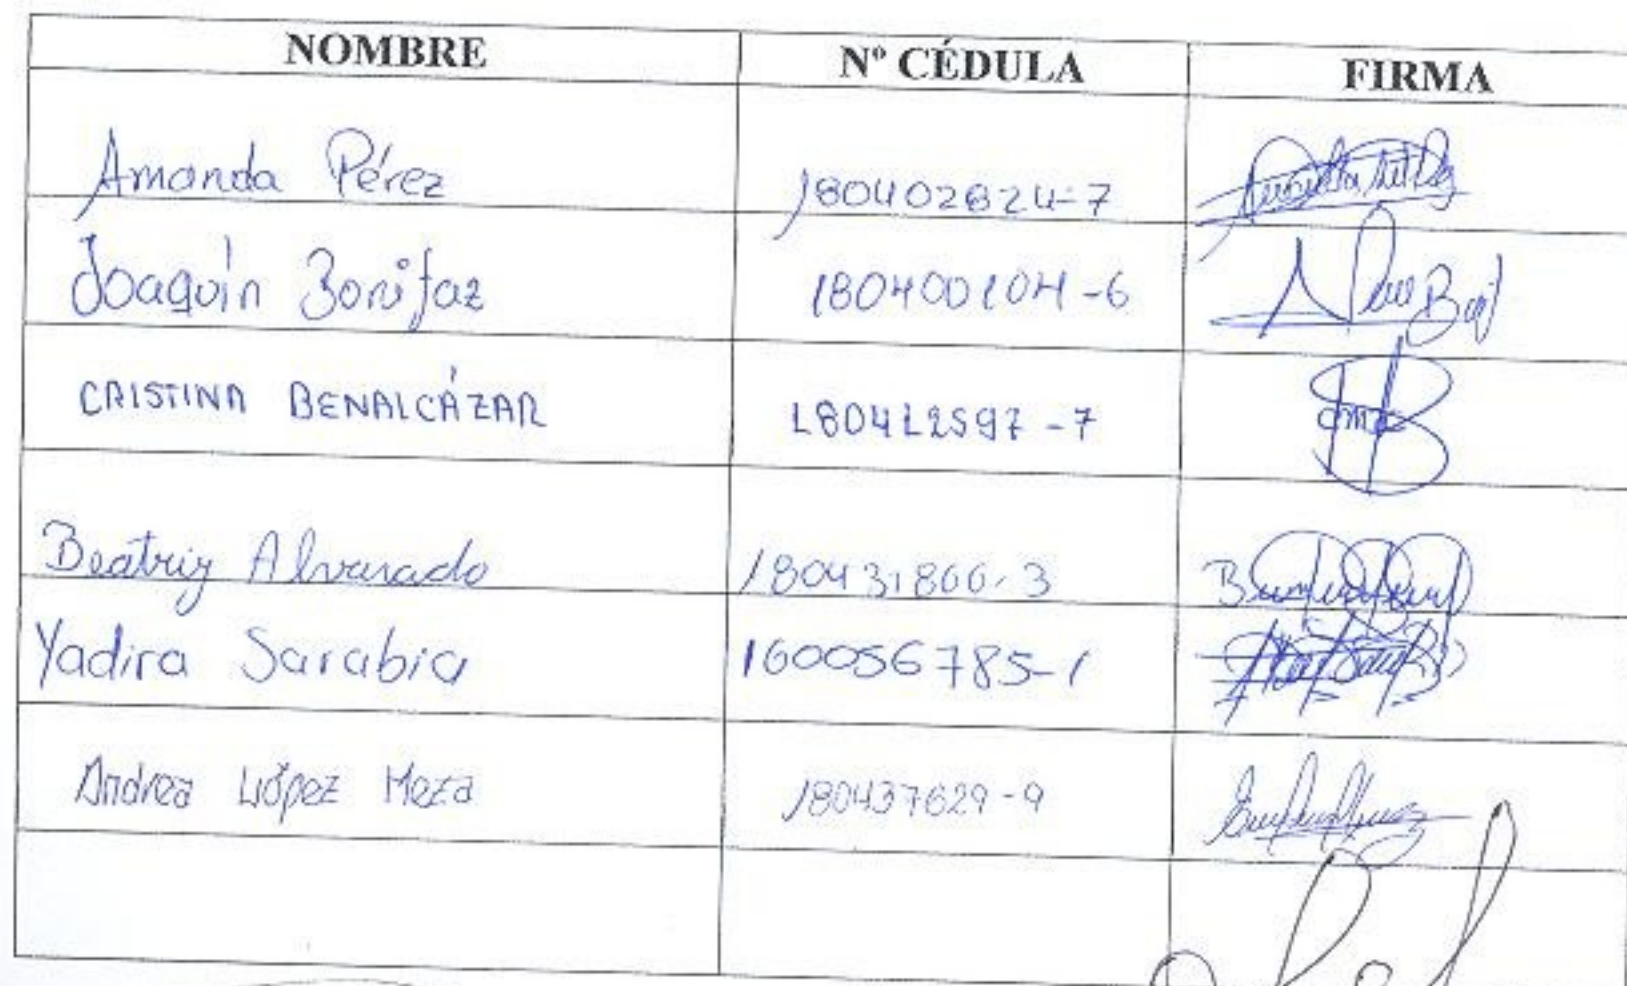 NOMBRE Nº CÉDULA FIRMA
Amanda Pérez 180402824-7
Joaquín Bonifaz 180400104-6
CRISTINA BENALCÁZAR 180412597-7
Beatriz Alvarado 180431866-3
Yadira Sarabia 160056785-1
Andrea López Meza 180437629-9